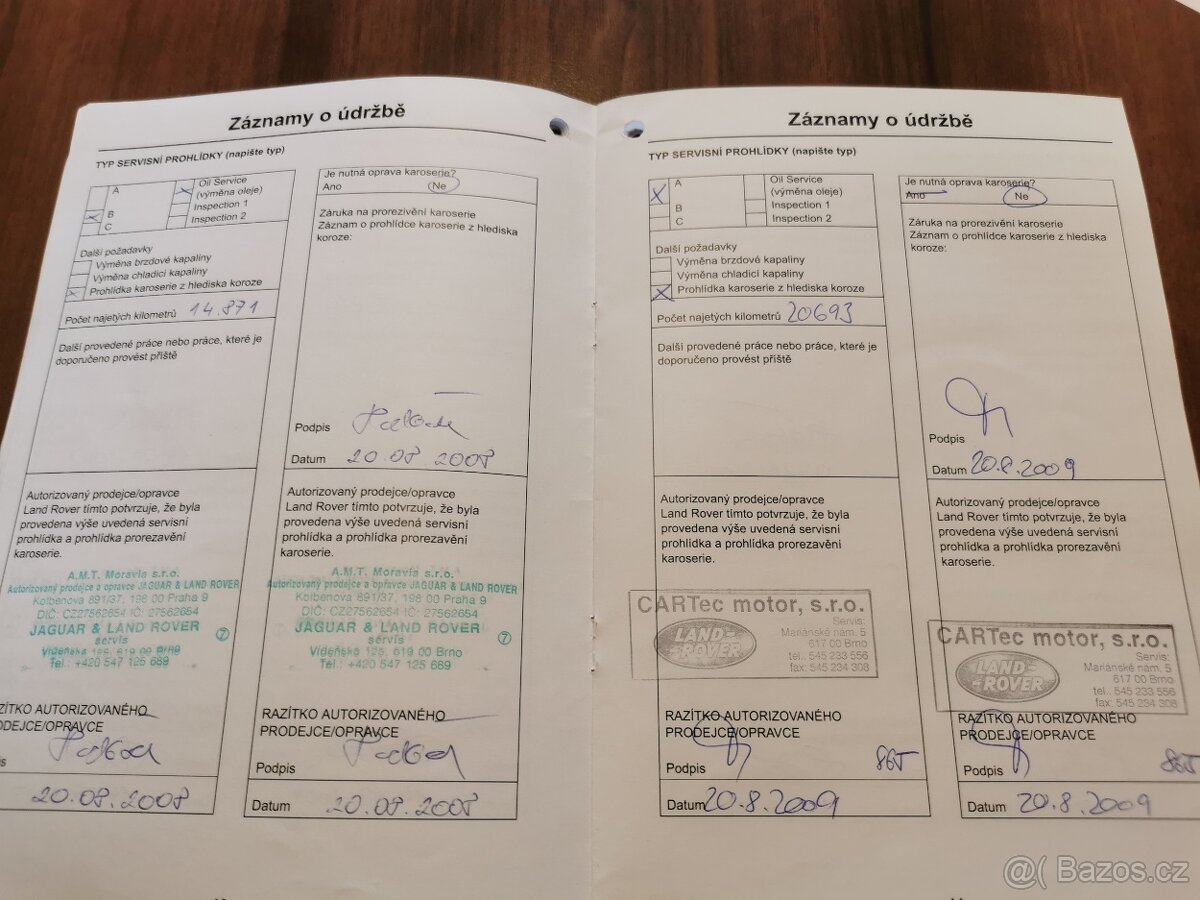 Záznamy o údržbě
TYP SERVISNÍ PROHLÍDKY (napište typ)
A
B
C
Oil Service
(výměna oleje)
Inspection 1
Inspection 2
Další požadavky
Výměna brzdové kapaliny
Výměna chladicí kapaliny
Prohlídka karoserie z hlediska koroze
Počet najetých kilometrů 14.871
Další provedené práce nebo práce, které je
doporučeno provést příště
Autorizovaný prodejce/opravce
Land Rover tímto potvrzuje, že byla
provedena výše uvedená servisní
prohlídka a prohlídka prorezavění
karoserie.
A.M.T. Moravia s.r.o.
Autorizovaný prodejce a opravce JAGUAR & LAND ROVER
Kolbenova 891/37, 198 00 Praha 9
DIČ: CZ27562654 IČ: 27562654
JAGUAR & LAND ROVER
servis
7
Vídeňská 125, 619 00 Brno
Tel.: +420 547 125 689
RAZÍTKO AUTORIZOVANÉHO
PRODEJCE/OPRAVCE
20.08.2008
Je nutná oprava karoserie?
Ano Ne
Záruka na prorezivění karoserie
Záznam o prohlídce karoserie z hlediska
koroze:
Podpis
Datum 20.08 2008
Autorizovaný prodejce/opravce
Land Rover tímto potvrzuje, že byla
provedena výše uvedená servisní
prohlídka a prohlídka prorezavění
karoserie.
A.M.T. Moravia s.r.o.
Autorizovaný prodejce a opravce JAGUAR & LAND ROVER
Kolbenova 891/37, 198 00 Praha 9
DIČ: CZ27562654 IČ: 27562654
JAGUAR & LAND ROVER
servis
7
Vídeňská 125, 619 00 Brno
Tel.: +420 547 125 689
RAZÍTKO AUTORIZOVANÉHO
PRODEJCE/OPRAVCE
Podpis
Datum 20.08.2008
Záznamy o údržbě
TYP SERVISNÍ PROHLÍDKY (napište typ)
A
B
C
Oil Service
(výměna oleje)
Inspection 1
Inspection 2
Další požadavky
Výměna brzdové kapaliny
Výměna chladicí kapaliny
Prohlídka karoserie z hlediska koroze
Počet najetých kilometrů 20693
Další provedené práce nebo práce, které je
doporučeno provést příště
Autorizovaný prodejce/opravce
Land Rover tímto potvrzuje, že byla
provedena výše uvedená servisní
prohlídka a prohlídka prorezavění
karoserie.
CARTec motor, s.r.o.
LAND-
-ROVER
Servis:
Mariánské nám. 5
617 00 Brno
tel.: 545 233 556
fax: 545 234 308
RAZÍTKO AUTORIZOVANÉHO
PRODEJCE/OPRAVCE
Podpis
Datum 20.8.2009
Je nutná oprava karoserie?
Ano Ne
Záruka na prorezivění karoserie
Záznam o prohlídce karoserie z hlediska
koroze:
Podpis
Datum 20.8.2009
Autorizovaný prodejce/opravce
Land Rover tímto potvrzuje, že byla
provedena výše uvedená servisní
prohlídka a prohlídka prorezavění
karoserie.
CARTec motor, s.r.o.
LAND-
-ROVER
Servis:
Mariánské nám. 5
617 00 Brno
tel.: 545 233 556
fax: 545 234 308
RAZÍTKO AUTORIZOVANÉHO
PRODEJCE/OPRAVCE
Podpis
Datum 20.8.2009
@( Bazos.cz